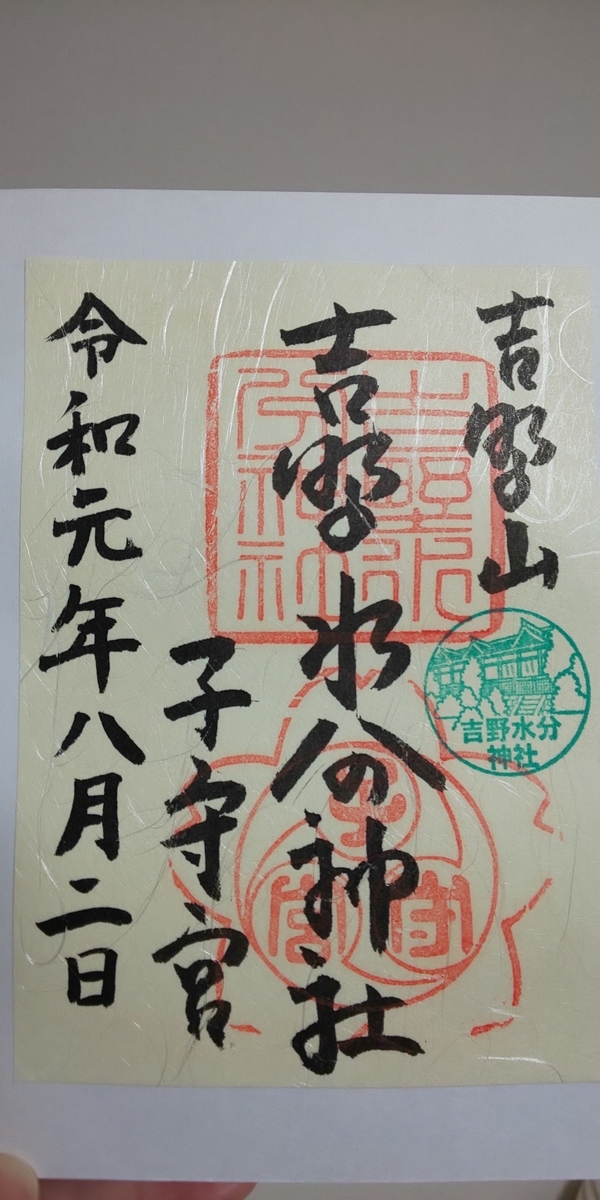 吉野山
吉野水分神社
吉野水分神社
子守宮
令和元年八月二日
吉野水分
神社